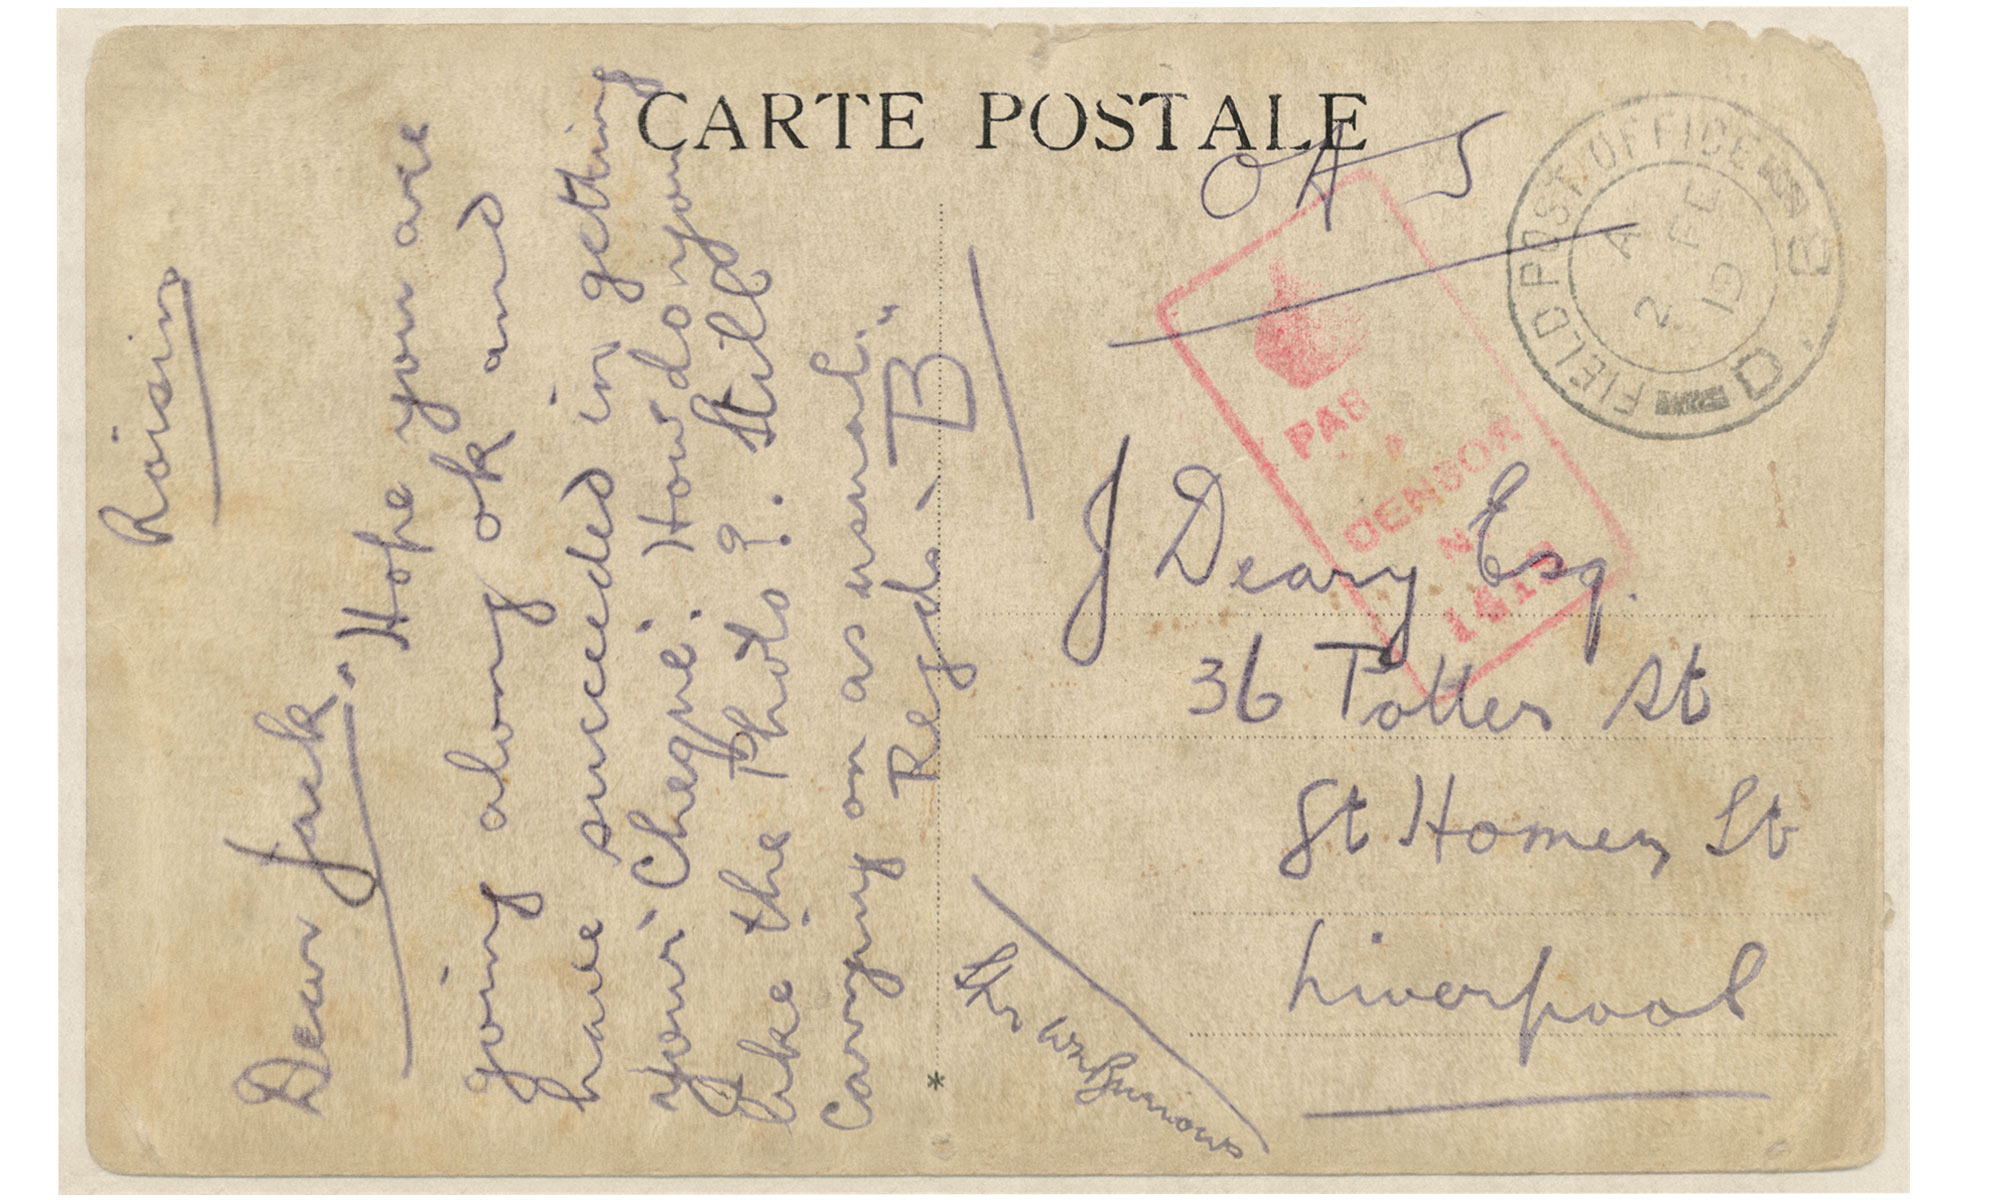 CARTE POSTALE
Roisin
Dear Jack.
Hope you are
going along ok and
have succeeded in getting
your 'Cheque'. How do you
like the Photo?. Still
Carrying on as usual."
Regds. B
O A S
FIELD POST OFFICE
D. E
A
2 FE
19
PAS
CENSOR
J Deary Esq.
36 Potter St
St Homer St
Liverpool
*